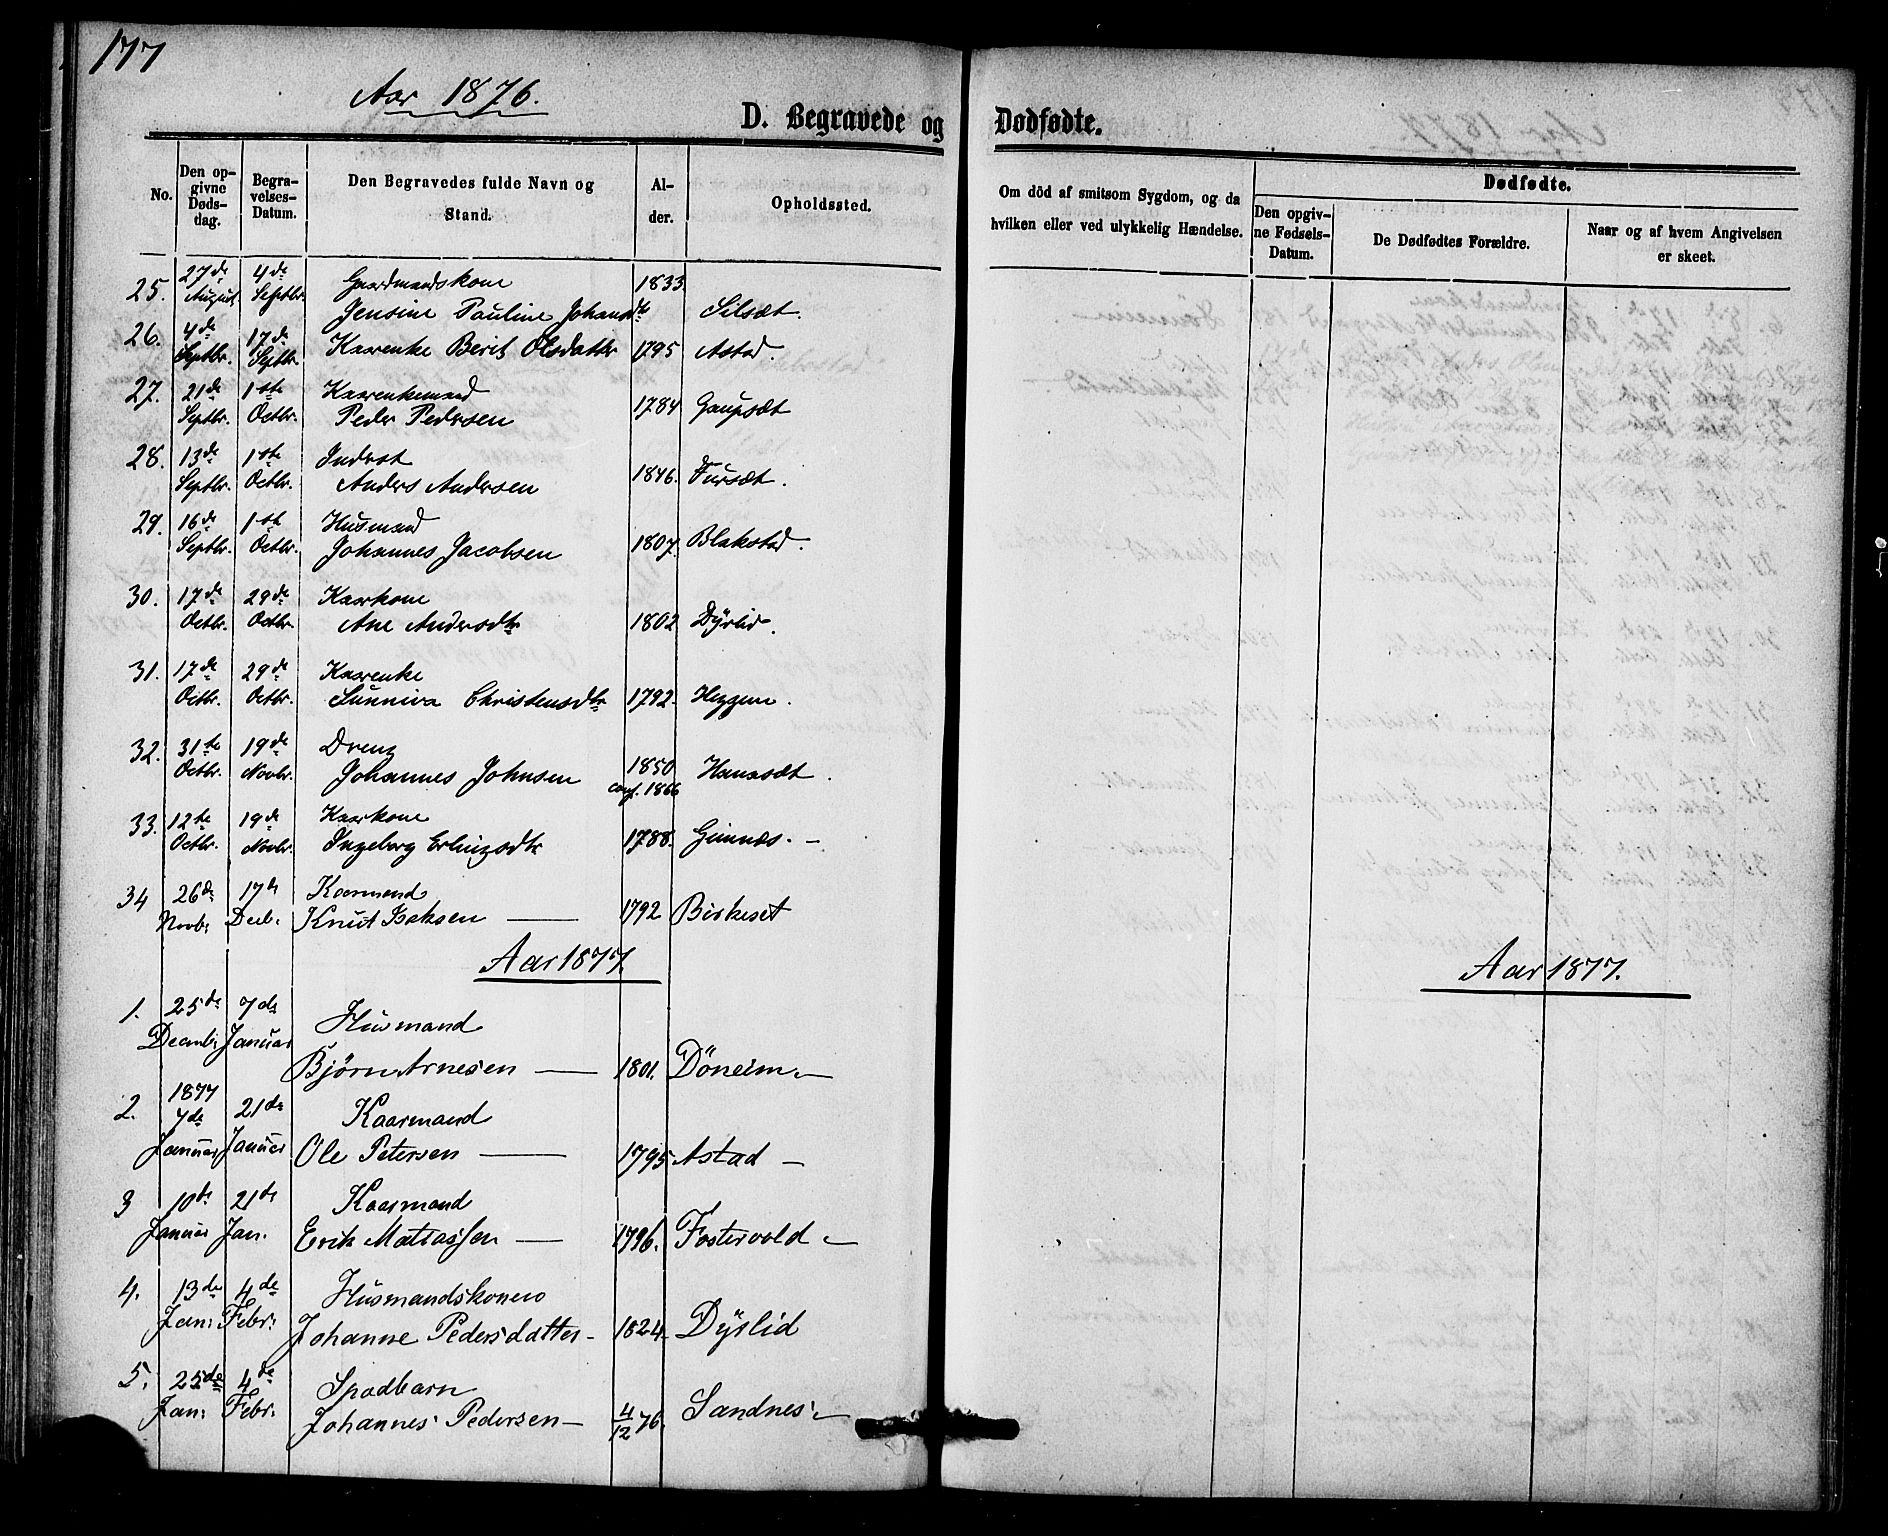 177
Aar 1876.
D. Begravede og Dødfødte.
No.
Den opgivne Dødsdag.
Begravelses-Datum.
Den Begravedes fulde Navn og Stand.
Alder.
Opholdssted.
Om död af smitsom Sygdom, og da hvilken eller ved ulykkelig Hændelse.
Dødfødte.
Den opgivne Fødsels-Datum.
De Dødfødtes Forældre.
Naar og af hvem Angivelsen er skeet.
25. 27de August. 4de Septbr. Gaardmandskone 1833
Jensine Pauline Johansdtr Silsæt.
26. 4de Septbr. 17de Septbr. Kaarenke Berit Olsdatter 1795 Astad.
27. 21de Septbr. 1ste Octbr. Kaarenkemand
Peder Pedersen 1784 Gaupsæt
28. 13de Septbr. 1ste Octbr. Inderst
Anders Andersen 1846. Fursæt.
29. 16de Septbr. 1st Octbr. Husmand
Johannes Jacobsen 1807. Blakstad.
30. 17de Octbr. 29de Octbr. Kaarkone
Ane Andersdtr 1802 Dÿrlid.
31. 17de Octbr. 29de Octbr. Kaarenke
Sunniva Christensdtr 1792. Heggem.
32. 31te Octbr. 19de Novbr. Dreng
Johannes Johnsen 1850 conf. 1866 Hanasæt.
33. 12te Octbr. 19de Novbr. Kaarkone
Ingeborg Erlingsdtr 1788. Gimnæs. -
34 26de Novb: 17de Decb. Kaarmand
Knut Isaksen — 1792 Birkeset
Aar 1877.
Aar 1877.
1. 25de Decemb: 7de Januar Husmand
Bjørn Arnesen — 1801. Döneim. -
1877
2. 7de Januar 21de Januar Kaarmand
Ole Petersen — 1795 Astad -
3 10de Januar 21de Jan. Kaarmand
Erik Matiassen — 1796. Fostervold -
4. 13de Jan: 4de Febr: Husmandskonen
Johanne Pedersdatter - 1824. Dÿrlid
5. 25de Jan: 4de Febr: Spædbarn
Johannes Pedersen - 4/12 76. Sandnes -